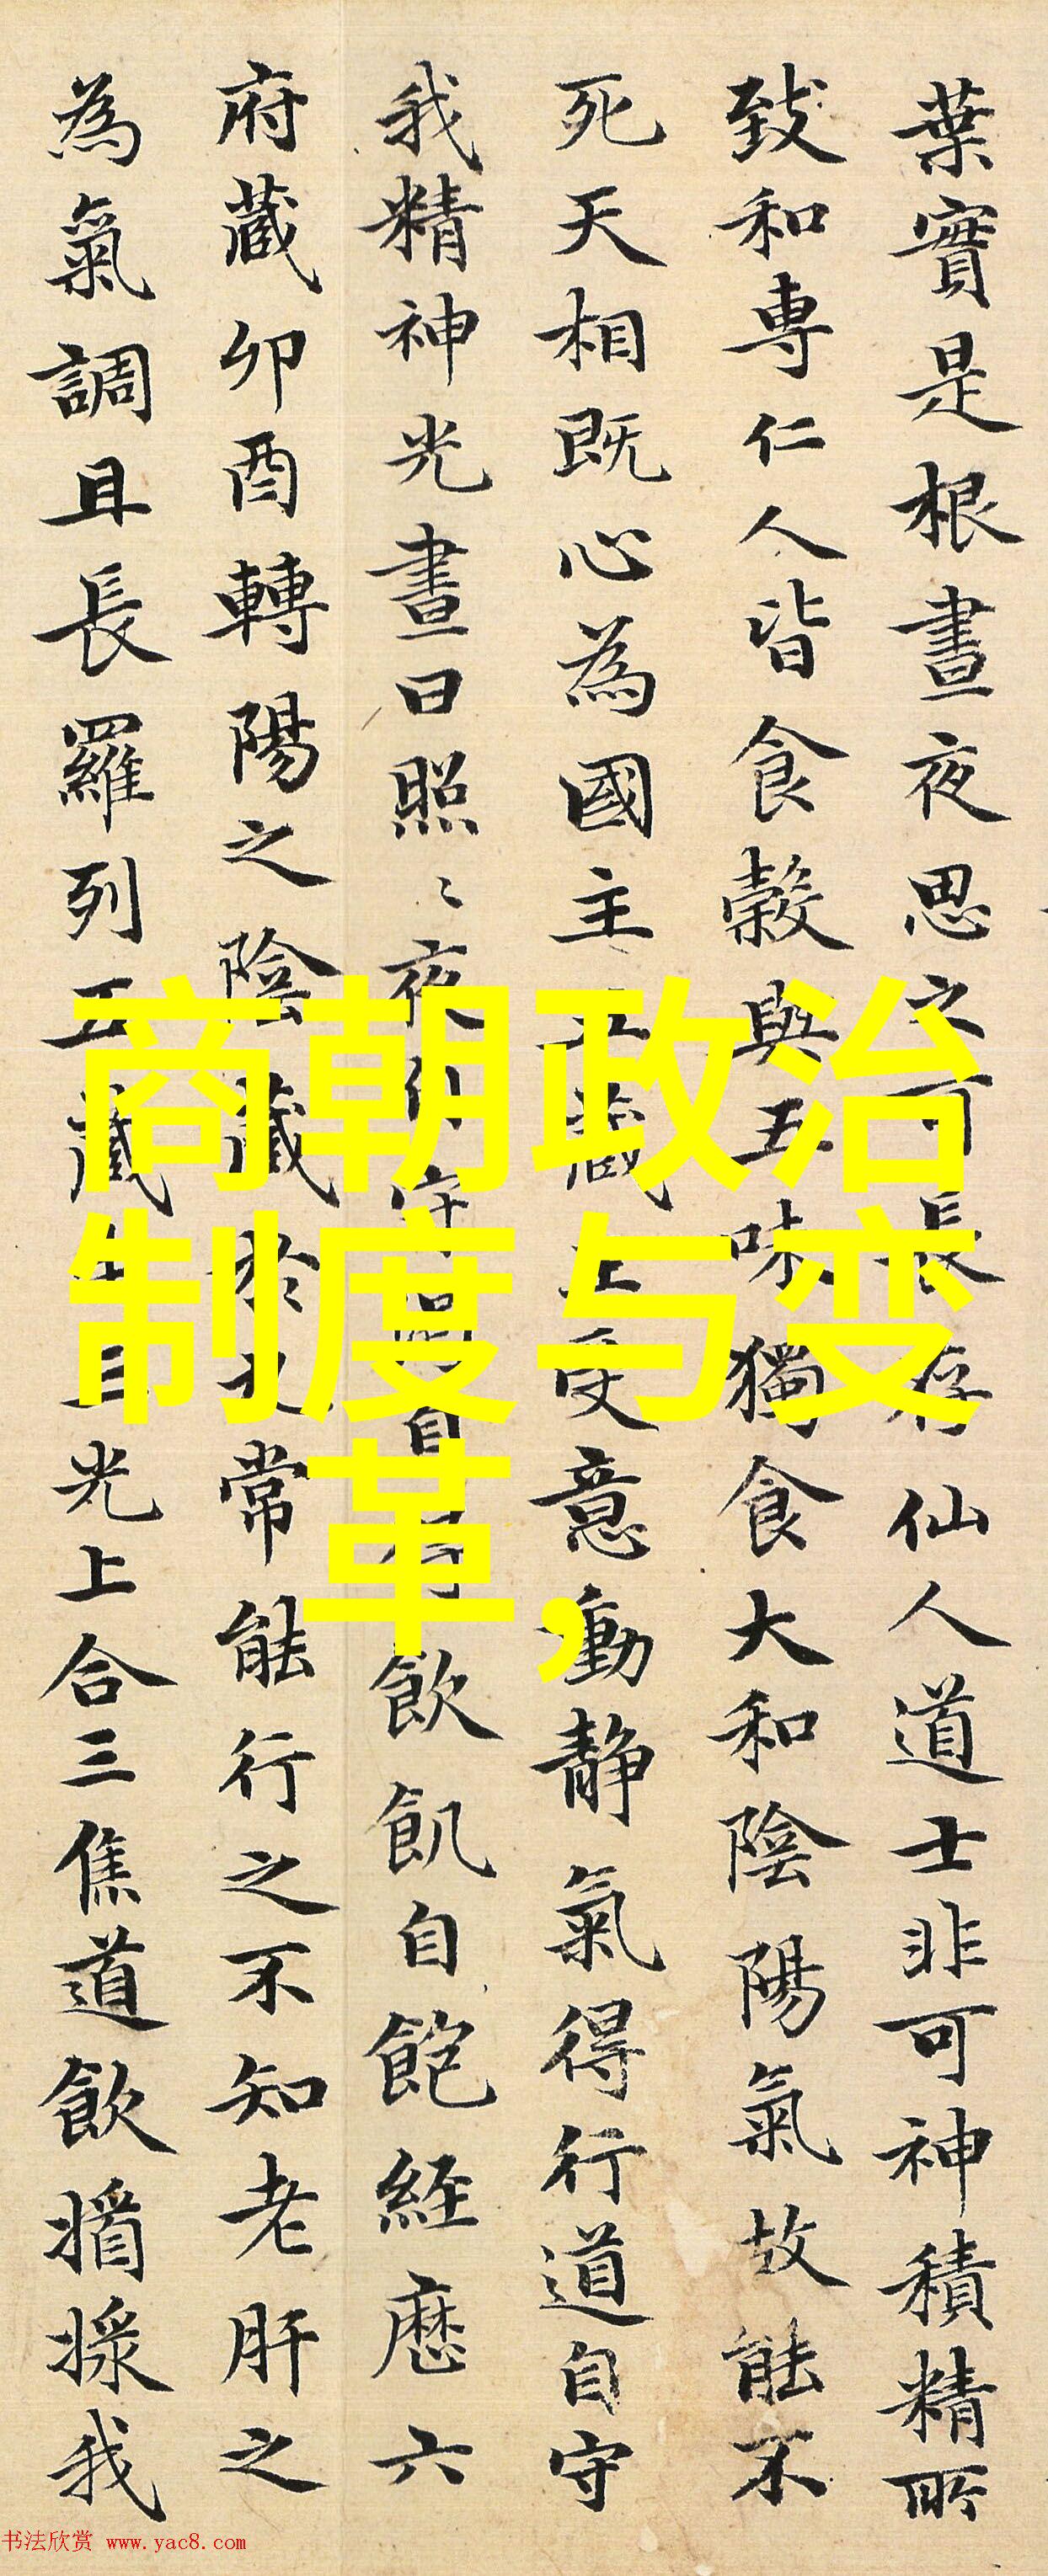 葉實是根晝夜思之可長存仙人道士非可神積精所
致和專仁人皆食榖與五味獨食大和陰陽氣故能不
死天相既心為國主五藏王受意動静氣得行道自守
我精神光晝日照〻夜守自飲飢自飽經歷六
府蔵卯酉轉陽之陰藏於九常能行之不知老肝之
為氣調且長羅列五藏生三光上合三焦道飲我
商朝政治
制度与变
革,
书法欣赏 www.yac8.com